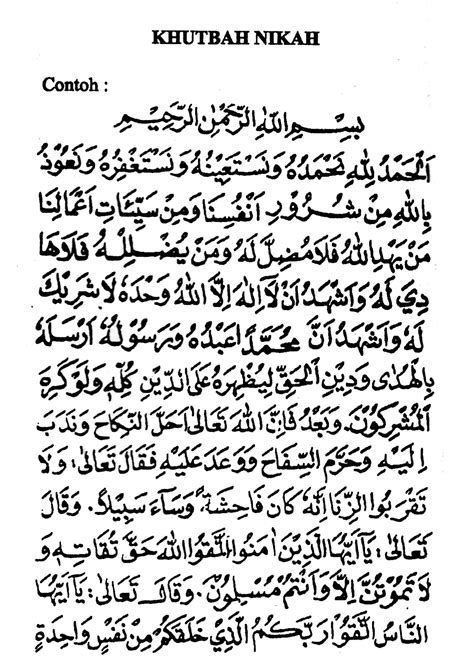 KHUTBAH NIKAH
Contoh :
بِسْمِ اللهِ الرَّحْمٰنِ الرَّحِيْمِ
اَلْحَمْدُ لِلّٰهِ نَحْمَدُهُ وَنَسْتَعِيْنُهُ وَنَسْتَغْفِرُهُ وَنَعُوْذُ
بِاللهِ مِنْ شُرُوْرِ اَنْفُسِنَا وَمِنْ سَيِّئَاتِ اَعْمَالِنَا
مَنْ يَهْدِ اللهُ فَلَا مُضِلَّ لَهُ وَمَنْ يُضْلِلْهُ فَلَاهَا
دِيَ لَهُ وَاَشْهَدُ اَنْ لَا اِلٰهَ اِلَّا اللهُ وَحْدَهُ لَا شَرِيْكَ
لَهُ وَاَشْهَدُ اَنَّ مُحَمَّدًا عَبْدُهُ وَرَسُوْلُهُ اَرْسَلَهُ
بِالْهُدٰى وَدِيْنِ الْحَقِّ لِيُظْهِرَهُ عَلَى الدِّيْنِ كُلِّهِ وَلَوْ كَرِهَ
الْمُشْرِكُوْنَ. وَبَعْدُ فَاِنَّ اللهَ تَعَالٰى اَحَلَّ النِّكَاحَ وَنَدَبَ
اِلَيْهِ وَحَرَّمَ السِّفَاحَ وَوَعَدَ عَلَيْهِ فَقَالَ تَعَالٰى: وَلَا
تَقْرَبُوا الزِّنَا اِنَّهُ كَانَ فَاحِشَةً وَسَاءَ سَبِيْلًا. وَقَالَ
تَعَالٰى: يَآاَيُّهَا الَّذِيْنَ اٰمَنُوا اتَّقُوا اللهَ حَقَّ تُقَاتِهِ وَ
لَا تَمُوْتُنَّ اِلَّا وَاَنْتُمْ مُسْلِمُوْنَ. وَقَالَ تَعَالٰى: يَآاَيُّهَا
النَّاسُ اتَّقُوْا رَبَّكُمُ الَّذِيْ خَلَقَكُمْ مِنْ نَفْسٍ وَاحِدَةٍ